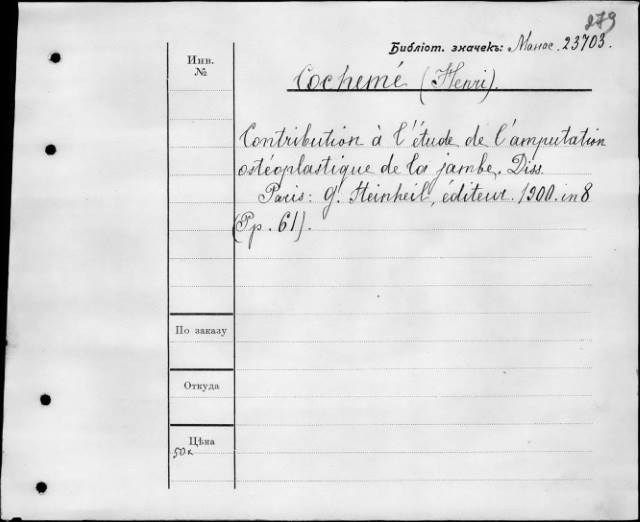 279
Библіот. значекъ: Манос. 23703.
Инв.
№
Cochemé (Henri).
Contribution à l'étude de l'amputation
ostéoplastique de la jambe. Diss.
Paris: G. Steinheil, éditeur. 1900. in 8
(Pp. 61).
По заказу
Откуда
Цѣна
50к